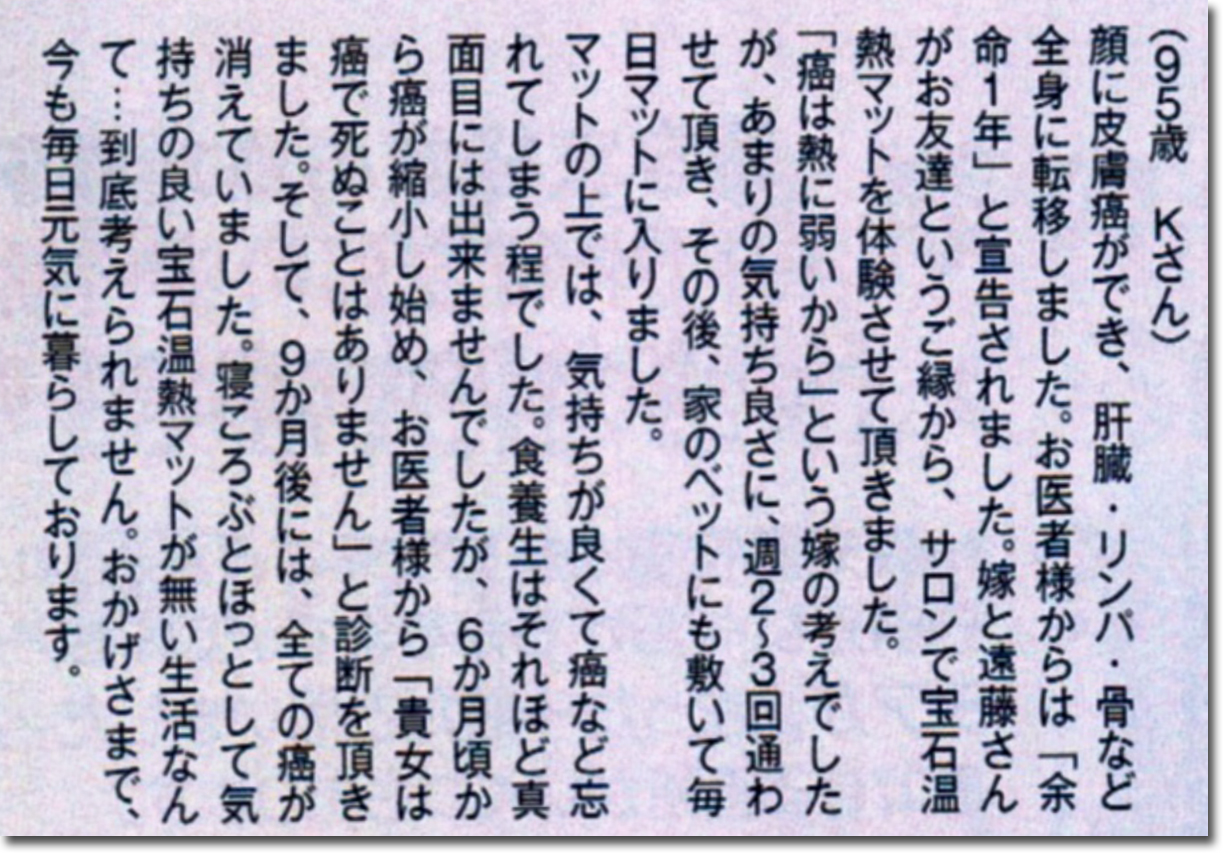 (95歳 Kさん)
顔に皮膚癌ができ、肝臓・リンパ・骨など
全身に転移しました。お医者様からは「余
命1年」と宣告されました。嫁と遠藤さん
がお友達というご縁から、サロンで宝石温
熱マットを体験させて頂きました。
「癌は熱に弱いから」という嫁の考えでした
が、あまりの気持ち良さに、週2~3回通わ
せて頂き、その後、家のベットにも敷いて毎
日マットに入りました。
マットの上では、気持ちが良くて癌など忘
れてしまう程でした。食養生はそれほど真
面目には出来ませんでしたが、6か月頃か
ら癌が縮小し始め、お医者様から「貴女は
癌で死ぬことはありません」と診断を頂き
ました。そして、9か月後には、全ての癌が
消えていました。寝ころぶとほっとして気
持ちの良い宝石温熱マットが無い生活なん
て…到底考えられません。おかげさまで、
今も毎日元気に暮らしております。